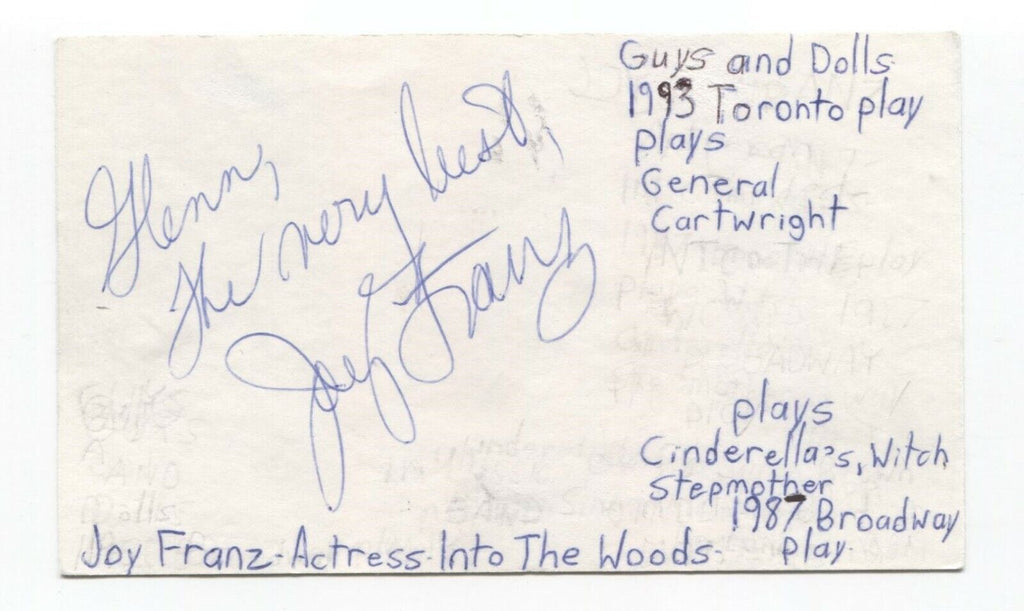 Glenn,
the very best,
Joy Franz
Guys and Dolls
1993 Toronto play
plays
General
Cartwright
plays
Cinderella's, Witch
Stepmother
1987 Broadway
Joy Franz-Actress-Into The Woods- play-